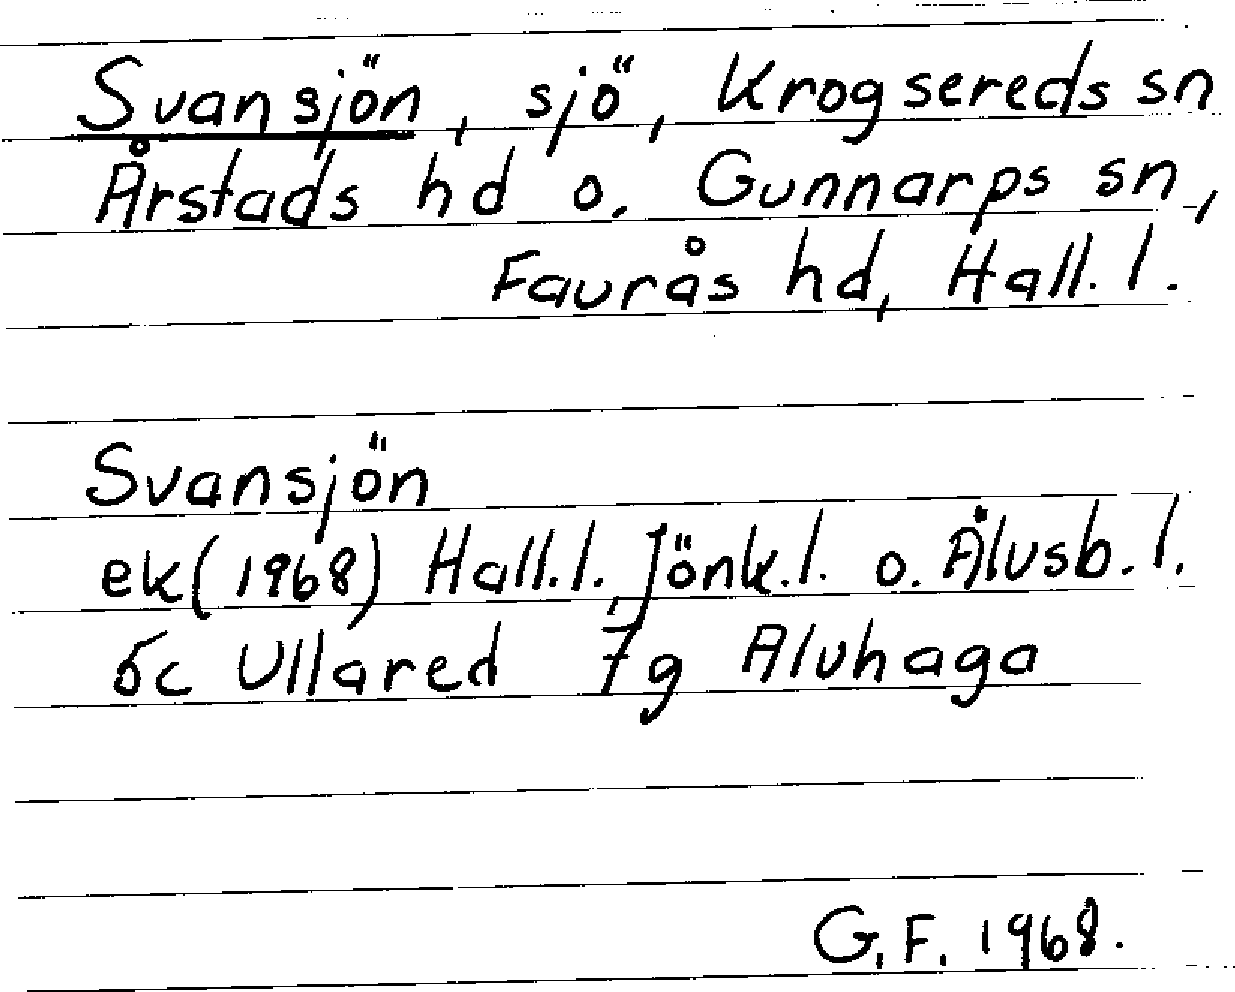 Svansjön, sjö, Krogsereds sn
Årstads hd o. Gunnarps sn,
Faurås hd, Hall. l.
Svansjön
ek(1968) Hall.l. Jönk.l. o. Älvsb.l.
5c Ullared 7g Alvhaga
G.F. 1968.